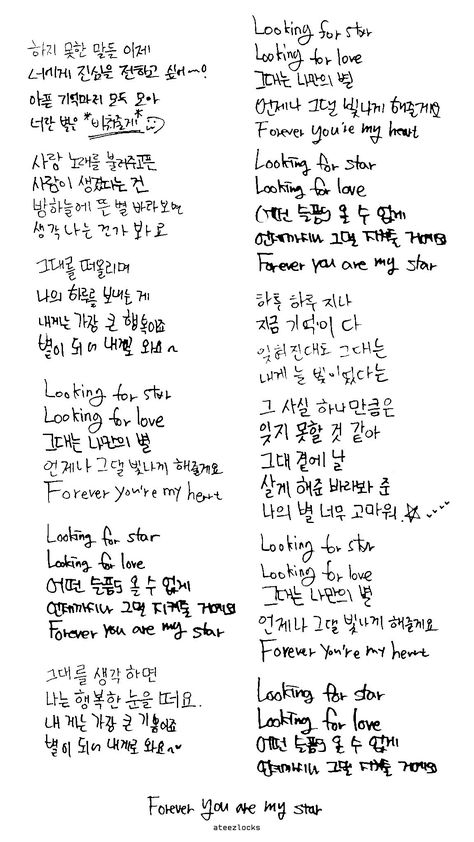 하지 못한 말들 이제
너에게 진심을 전하고 싶어~!
아픈 기억마저 모두 모아
너란 별을 *비춰줄게*
사랑 노래를 불러주고픈
사람이 생겼다는 건
밤하늘에 뜬 별 바라보면
생각 나는 건가 봐요
그대를 떠올리며
나의 하루를 보내는 게
내게는 가장 큰 행복이죠
별이 되어 내게로 와요~
Looking for star
Looking for love
그대는 나만의 별
언제나 그댈 빛나게 해줄게요
Forever you're my heart
Looking for star
Looking for love
어떤 슬픔도 올 수 없게
언제까지나 그댈 지켜줄 거예요
Forever you are my star
그대를 생각하면
나는 행복한 눈을 떠요.
내게는 가장 큰 기쁨이죠
별이 되어 내게로 와요~
Looking for star
Looking for love
그대는 나만의 별
언제나 그댈 빛나게 해줄게요
Forever you're my heart
Looking for star
Looking for love
어떤 슬픔도 올 수 없게
언제까지나 그댈 지켜줄 거예요
Forever you are my star
하루 하루 지나
지금 기억이 다
잊혀진대도 그대는
내게 늘 빛이었다는
그 사실 하나만큼은
잊지 못할 것 같아
그대 곁에 날
살게 해준 바라봐 준
나의 별 너무 고마워
Looking for star
Looking for love
그대는 나만의 별
언제나 그댈 빛나게 해줄게요
Forever you're my heart
Looking for star
Looking for love
어떤 슬픔도 올 수 없게
언제까지나 그댈 지켜줄 거예요
Forever you are my star
ateezlocks